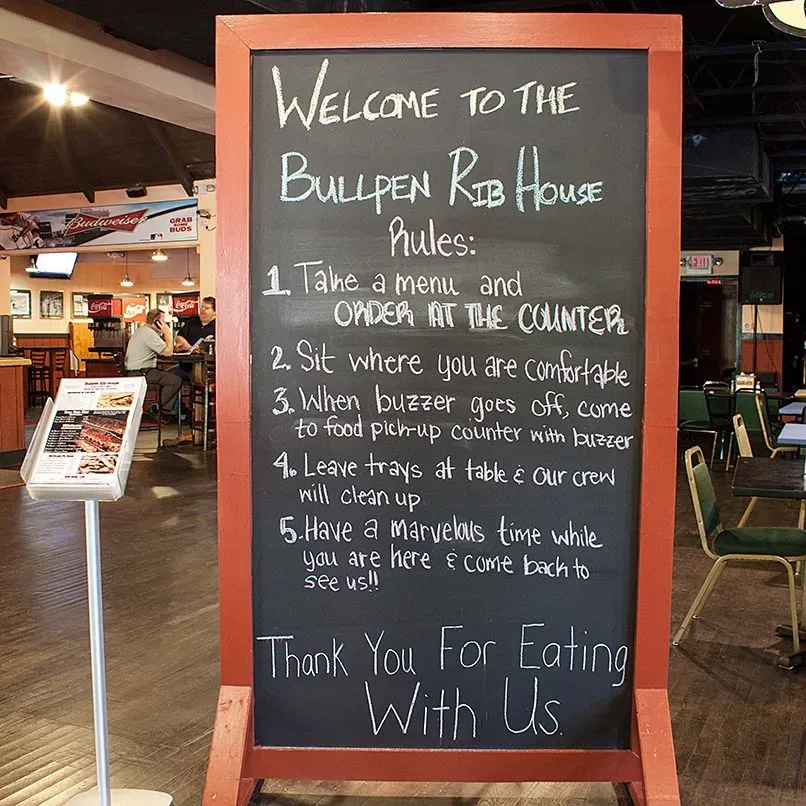 WELCOME TO THE
BULLPEN RIB HOUSE
Rules:
1. Take a menu and
ORDER AT THE COUNTER
2. Sit where you are comfortable
3. When buzzer goes off, come
to food pick-up counter with buzzer
4. Leave trays at table & our crew
will clean up
5. Have a marvelous time while
you are here & come back to
see us!!
Thank You For Eating
With Us.
Budweiser
GRAB
SOME
BUDS
Coca-Cola
Coca-Cola
EXIT